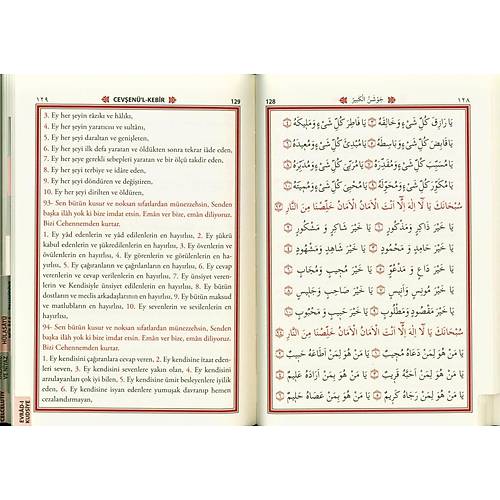 ١٢٩ CEVŞENÜ'L-KEBÎR 129
3. Ey her şeyin râzıkı ve hâlıkı,
4. Ey her şeyin yaratıcısı ve sultânı,
5. Ey her şeyi daraltan ve genişleten,
6. Ey her şeyi ilk defa yaratan ve öldükten sonra tekrar iâde eden,
7. Ey her şeye gerekli sebepleri yaratan ve bir ölçü takdir eden,
8. Ey her şeyi terbiye ve idâre eden,
9. Ey her şeyi döndüren ve değiştiren,
10. Ey her şeyi dirilten ve öldüren,
93- Sen bütün kusur ve noksan sıfatlardan münezzehsin, Senden
başka ilâh yok ki bize imdat etsin. Emân ver bize, emân diliyoruz.
Bizi Cehennemden kurtar.
1. Ey yâd edenlerin ve yâd edilenlerin en hayırlısı, 2. Ey şükrü
kabul edenlerin ve şükredilenlerin en hayırlısı, 3. Ey övenlerin ve
övülenlerin en hayırlısı, 4. Ey görenlerin ve görülenlerin en ha-
yırlısı, 5. Ey çağıranların ve çağırılanların en hayırlısı, 6. Ey cevap
verenlerin ve cevap verilenlerin en hayırlısı, 7. Ey ünsiyet veren-
lerin ve Kendisiyle ünsiyet edilenlerin en hayırlısı, 8. Ey bütün
dostların ve meclis arkadaşlarının en hayırlısı, 9. Ey bütün maksud
ve matlubların en hayırlısı, 10. Ey sevenlerin ve sevilenlerin en
hayırlısı,
94- Sen bütün kusur ve noksan sıfatlardan münezzehsin, Senden
başka ilâh yok ki bize imdat etsin. Emân ver bize, emân diliyoruz.
Bizi Cehennemden kurtar.
1. Ey kendisini çağıranlara cevap veren, 2. Ey kendisine itaat eden-
leri seven, 3. Ey kendisini sevenlere yakın olan, 4. Ey kendisini
arzulayanları çok iyi bilen, 5. Ey kendisine ümit besleyenlere iyilik
eden, 6. Ey kendisine isyan edenlere yumuşak davranıp hemen
cezalandırmayan,
128 جَوْشَنُ الْكَبِيرِ ١٢٨
يَا رَازِقَ كُلِّ شَيْءٍ وَخَالِقَهُ ٣ يَا فَاطِرَ كُلِّ شَيْءٍ وَمَلِيكَهُ ٤
يَا قَابِضَ كُلِّ شَيْءٍ وَبَاسِطَهُ ٥ يَا مُبْدِئَ كُلِّ شَيْءٍ وَمُعِيدَهُ ٦
يَا مُسَبِّبَ كُلِّ شَيْءٍ وَمُقَدِّرَهُ ٧ يَا مُرَبِّيَ كُلِّ شَيْءٍ وَمُدَبِّرَهُ ٨
يَا مُكَوِّرَ كُلِّ شَيْءٍ وَمُحَوِّلَهُ ٩ يَا مُحْيِيَ كُلِّ شَيْءٍ وَمُمِيتَهُ ١٠
سُبْحَانَكَ يَا لَا إِلٰهَ إِلَّا أَنْتَ الْأَمَانُ الْأَمَانُ خَلِّصْنَا مِنَ النَّارِ ٩٣
يَا خَيْرَ ذَاكِرٍ وَمَذْكُورٍ ١ يَا خَيْرَ شَاكِرٍ وَمَشْكُورٍ ٢
يَا خَيْرَ حَامِدٍ وَمَحْمُودٍ ٣ يَا خَيْرَ شَاهِدٍ وَمَشْهُودٍ ٤
يَا خَيْرَ دَاعٍ وَمَدْعُوٍّ ٥ يَا خَيْرَ مُجِيبٍ وَمُجَابٍ ٦
يَا خَيْرَ مُونِسٍ وَأَنِيسٍ ٧ يَا خَيْرَ صَاحِبٍ وَجَلِيسٍ ٨
يَا خَيْرَ مَقْصُودٍ وَمَطْلُوبٍ ٩ يَا خَيْرَ حَبِيبٍ وَمَحْبُوبٍ ١٠
سُبْحَانَكَ يَا لَا إِلٰهَ إِلَّا أَنْتَ الْأَمَانُ الْأَمَانُ خَلِّصْنَا مِنَ النَّارِ ٩٤
يَا مَنْ هُوَ لِمَنْ دَعَاهُ مُجِيبٌ ١ يَا مَنْ هُوَ لِمَنْ أَطَاعَهُ حَبِيبٌ ٢
يَا مَنْ هُوَ لِمَنْ أَحَبَّهُ قَرِيبٌ ٣ يَا مَنْ هُوَ بِمَنْ أَرَادَهُ عَلِيمٌ ٤
يَا مَنْ هُوَ لِمَنْ رَجَاهُ كَرِيمٌ ٥ يَا مَنْ هُوَ بِمَنْ عَصَاهُ حَلِيمٌ ٦
EVRÂD-I
KUDSİYE